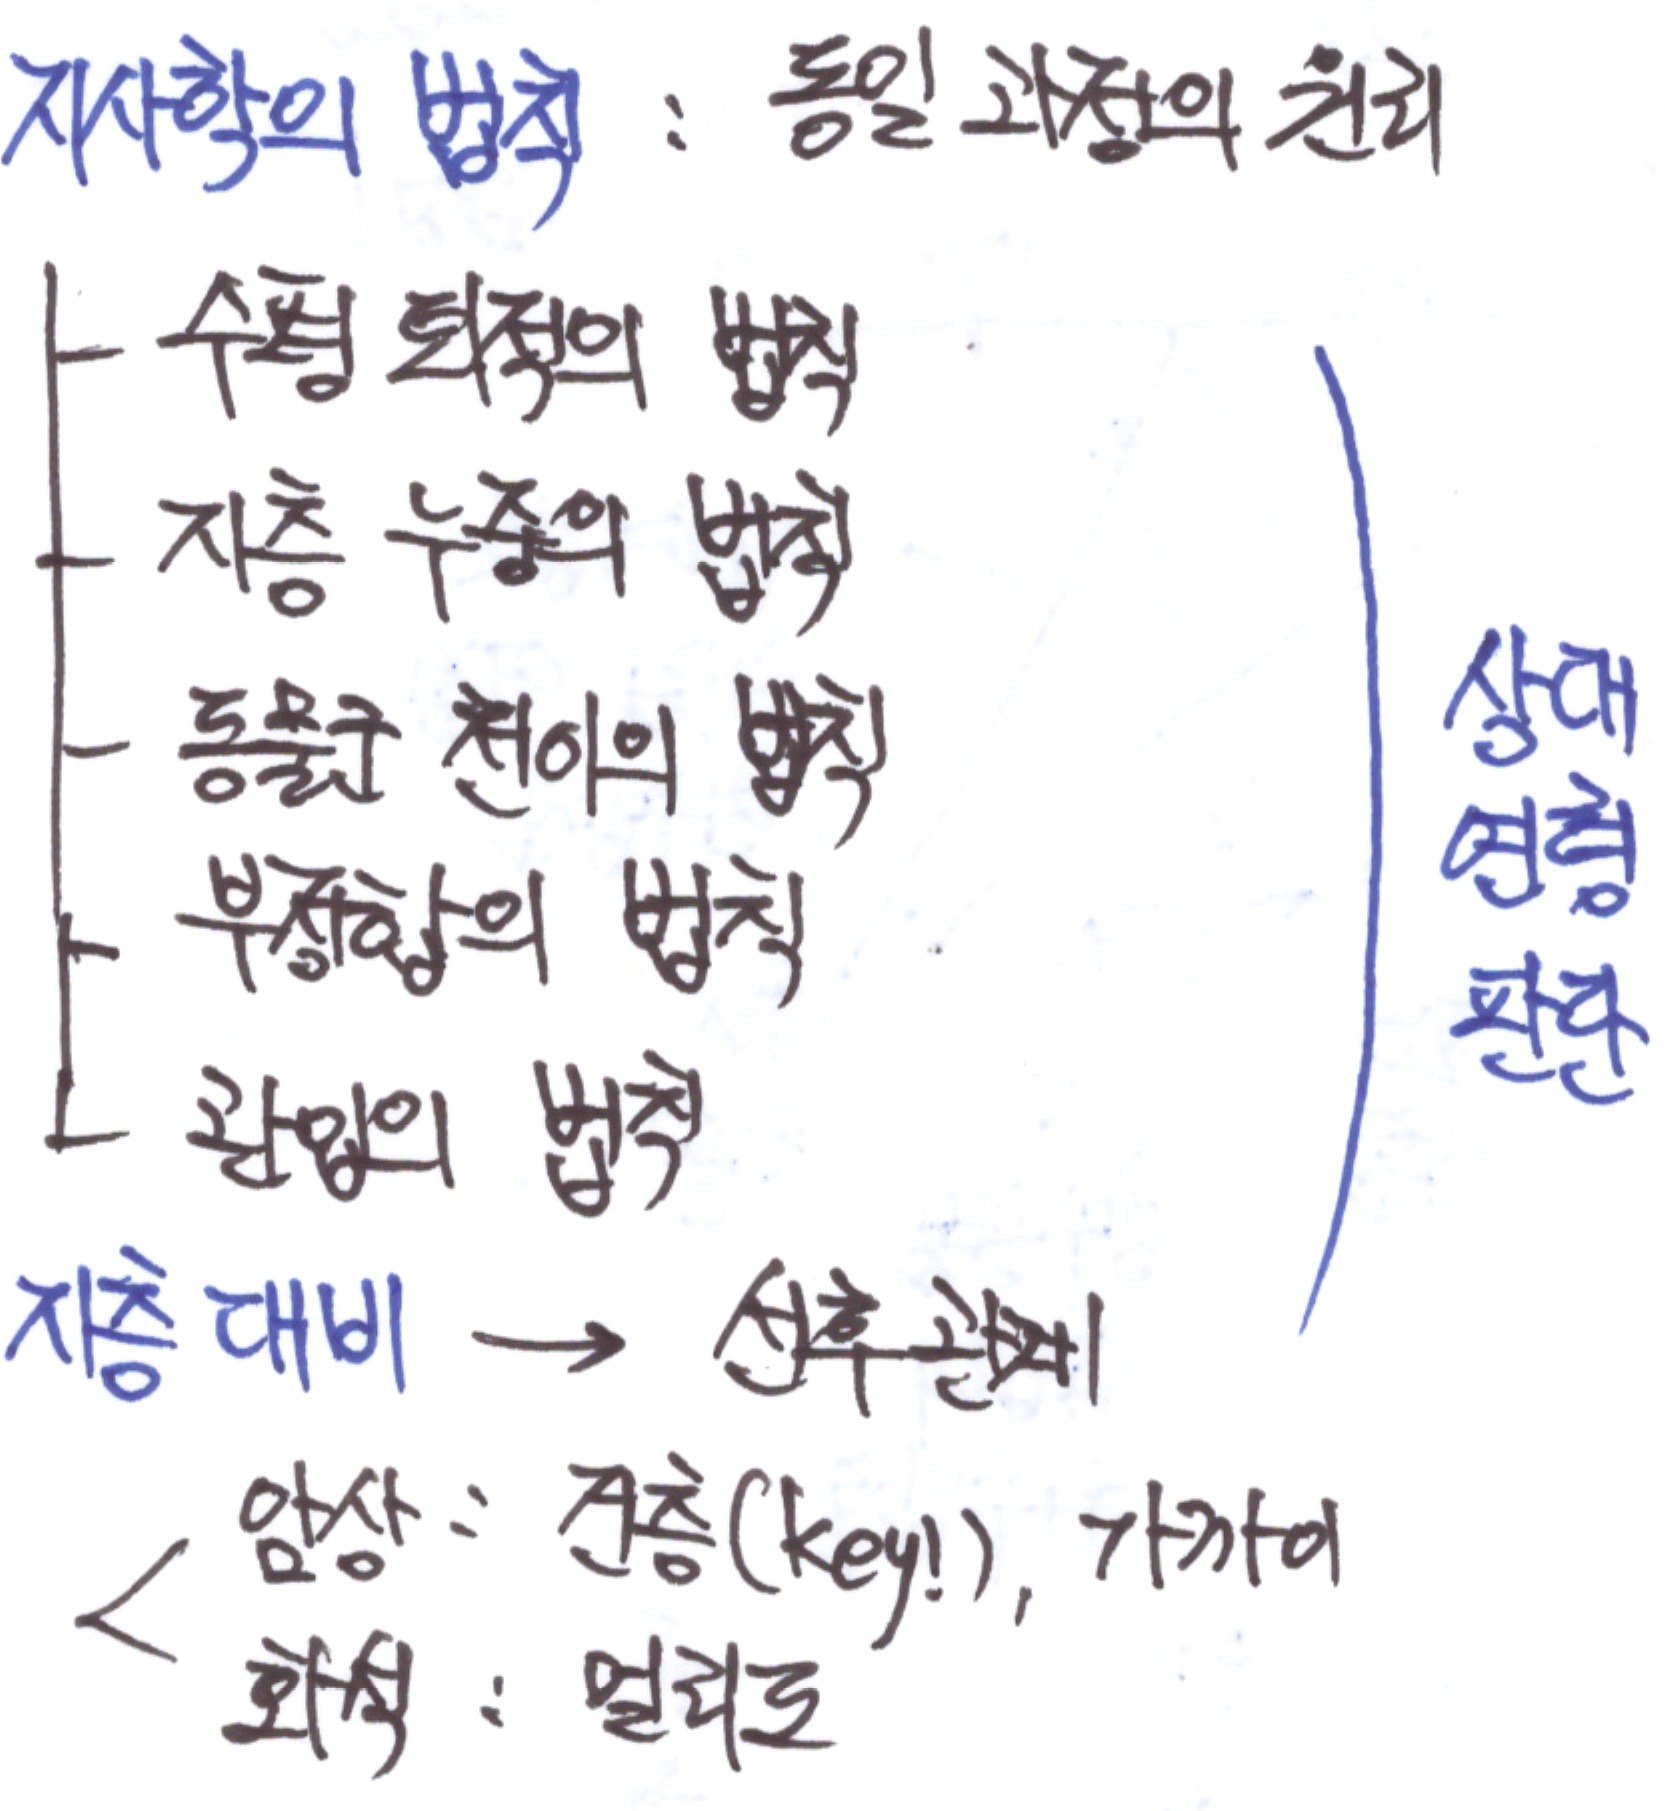 지사학의 법칙 : 동일 과정의 원리
수평 퇴적의 법칙
지층 누중의 법칙
동물군 천이의 법칙
부정합의 법칙
관입의 법칙
상대
연령
판단
지층 대비 → 선후관계
암상 : 건층(key!), 가까이
화석 : 멀리도